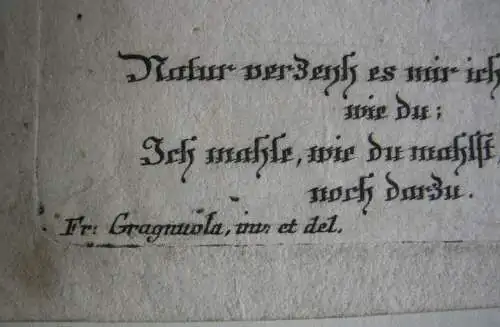 Natur verzeyh es mir ich
wie du;
Ich mahle, wie du mahlst,
noch darzu.
Fr: Gragnuola, inv. et del.